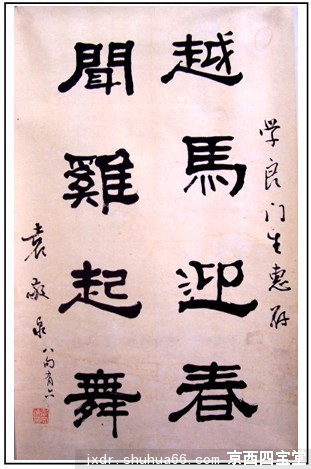 学良门生惠存
越馬迎春
聞雞起舞
袁敬泉八旬有六
jxdr.shuhua66.com 京西四宝堂